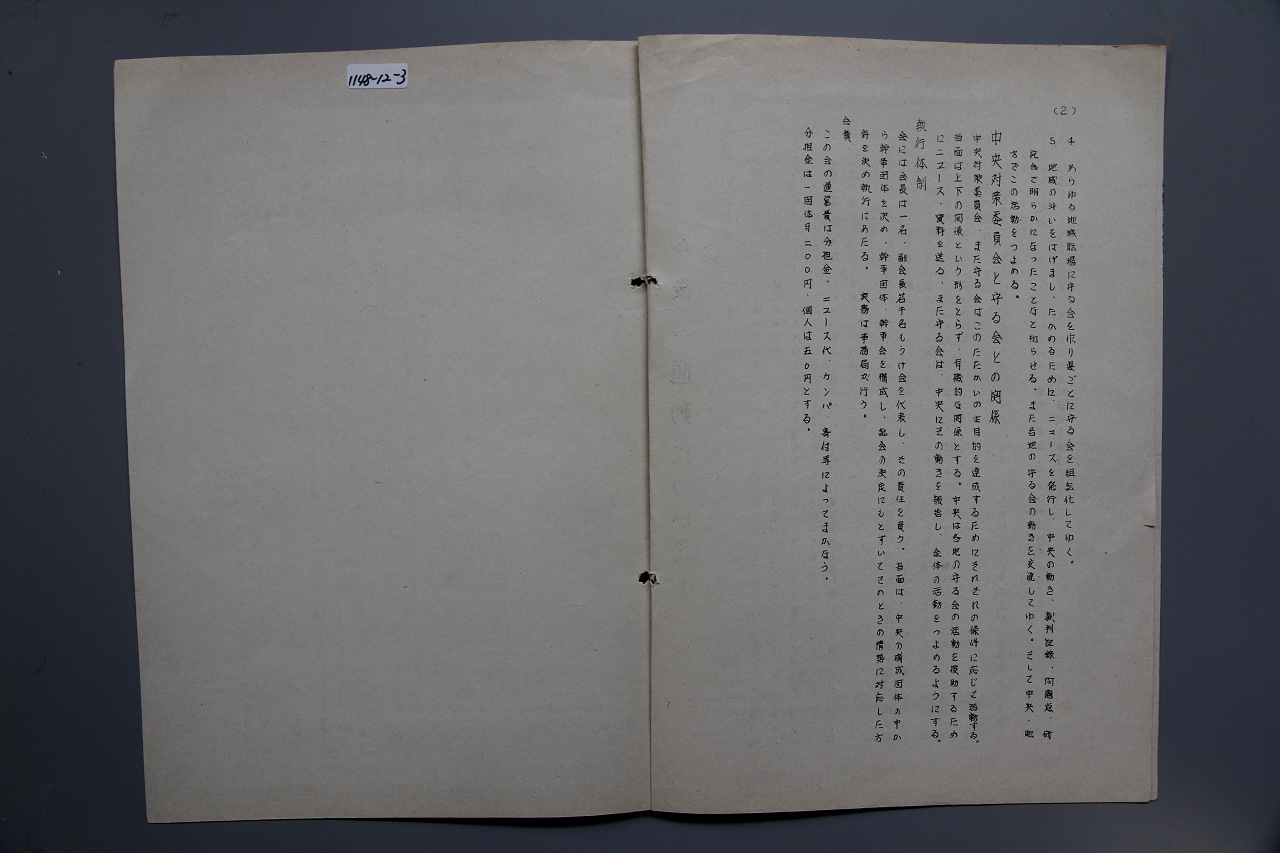 1148-12-3
(2)
4 あらゆる地域職場に守る会を作り県ごとに守る会を組織化してゆく。
5. 地域の斗いをはげまし、たかめるために、ニュースを発行し、中央の動き、裁判記録、問題点、研
究会で明らかになったことなど知らせる。また各地の守る会の動きを交流してゆく。そして中央・地
方でこの活動をつよめる。
中央対策委員会と守る会との関係
中央対策委員会、また守る会はこのたたかいの主目的を達成するためにそれぞれの条件に応じて活動する。
当面は上下の関係という形をとらず、有機的な関係とする。中央は各地の守る会の活動を援助するため
にニュース、資料を送る、また守る会は、中央にその動きを報告し、全体の活動をつよめるようにする。
執行体制
会には会長は一名、副会長若干名もうけ会を代表し、その責任を負う。当面は、中央の構成団体の中か
ら幹事団体を決め、幹事団体、幹事会を構成し、総会の決定にもとずいてそのときの情勢に対応した方
針を決め執行にあたる。 実務は事務局が行う。
会費
この会の運営費は分担金、ニュース代、カンパ、寄付等によってまかなう。
分担金は一団体月二〇〇円、個人は五〇円とする。